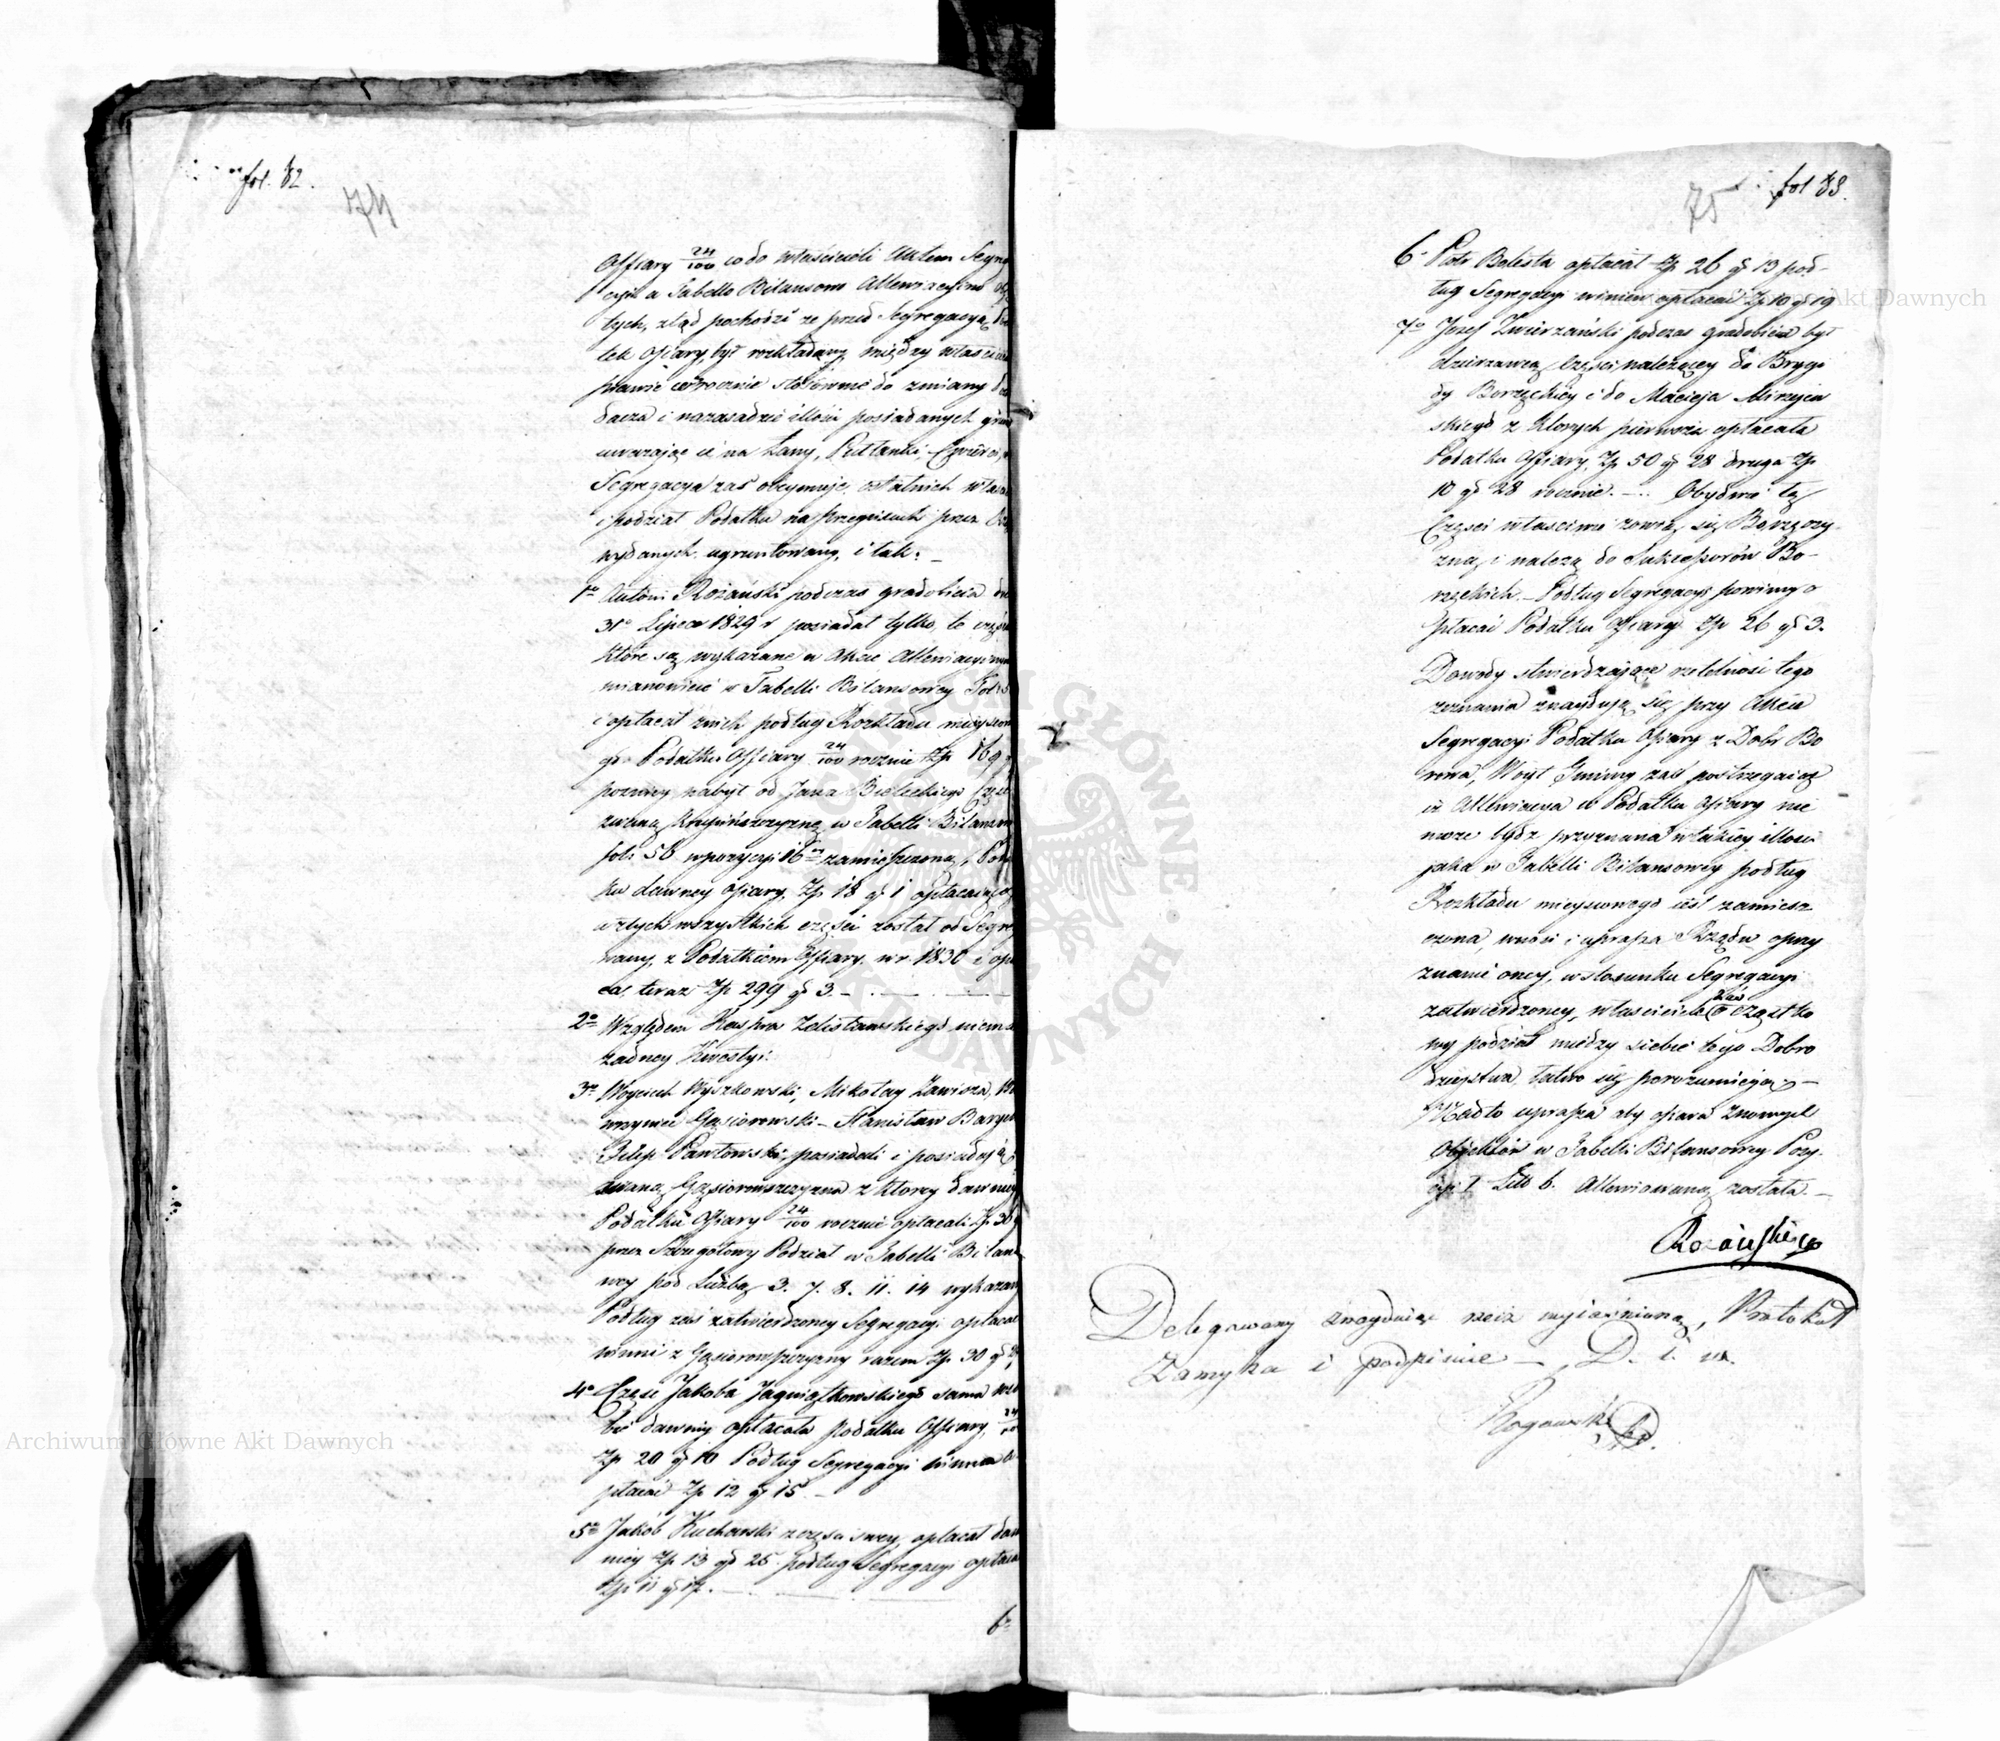 fol. 82.
74
Offiary 24/100 co do właścicieli Aktem Segre
cyi a Tabello Bilansowo Allewiacyino
tych, ztąd pochodzi ze przed Segregacyą
tek Ofiary, był rozkładany między właścici
prawie corocznie stosownie do zmiany
dacza i na zasadzie illości posiadanych grun
uwazaiąc ie na Łany, Półłanki, Cwierci,
Segregacya zaś obeymuje ostatnich właści
i podział Podatku na przepisach przez
wydanych ugruntowany, i tak: —
1o Antoni Rożański podczas gradobicia
31o Lipca 1829 r posiadał tylko te częś
które są wykazane w Akcie Allewiacyinym
mianowicie w Tabelli Bilansowey Fol:
i opłacał z nich podług Rozkładu mieyscowe
go Podatku Offiary 24/100 rocznie Zp 169
pozniey nabył od Jana Bieleckiego Część
zwaną Krupińszczyzną w Tabelli Bilanso
foli 56 w pozycyi 16 zamieszczoną, Poda
ku dawney Ofiary Zp 18 gr 1 opłacaiącą
a z tych wszystkich części został od Segre
wany, z Podatkiem Offiary w r. 1830 i opła
ca teraz Zp 299 gr 3. —
2o Względem Kaspra Zelisławskiego niema
zadney Kwestyi.
3o Woyciech Wyszkowski, Mikołay Zawisza,
wrzyniec Gąsiorowski — Stanisław Barzyk
Filip Pawłowski, posiadali i posiadaią
zwaną Gąsiorowszczyzna z ktorey dawniey
Podatku Ofiary 24/100 rocznie opłacali Zp 30
przez Szczegołowy Podział w Tabelli Bilans
wey pod Liczbą 3. 7. 8. 11. 14 wykazan
Podług zaś zatwierdzoney Segregacyi opłacać
winni z Gąsiorowszczyzny razem Zp 30 gr
4o Część Jakoba Jagniątkowskiego sama
bie dawniey opłacała podatku Offiary 24/100
Zp 20 gr 10 Podług Segregacyi winna o
płacać Zp 12 gr 15 —
5o Jakób Kucharski z części swey, opłacał daw
niey Zp 13 gr 25 podług Segregacyi opłaca
Zp 11 gr 17. —
6o
75
fol 83.
6o Piotr Bolesta opłacał Zp 26 gr 13 pod-
ług Segregacyi winien opłacać Zp 10 gr 19
7o Jozef Zwierzański podczas gradobicia był
dzierzawcą Części należącey do Brygi
dy Borzęckiey i do Macieja Mirzeiew
skiego z ktorych pierwsza opłacała
Podatku Offiary, Zp 50 gr 28 druga Zp
10 gr 28 rocznie. — Obydwie te
Części właściwie zowią się Borzęczy-
zną, i należą do Sukcessorów Bo-
rzęckich. — Podług Segregacyi powinny o
płacać Podatku Offiary Zp 26 gr 3.
Dowody stwierdzaiące rzetelność tego
zeznania znayduią się przy Akcie
Segregacyi Podatku Ofiary z Dobr Bo
rowa, Woyt Gminy zaś postrzegaiąc
iż Allewiacya w Podatku Ofiary nie
może bydź przyznana w takiey illości
jaka w Tabelli Bilansowey podług
Rozkładu mieyscowego iest zamiesz
czona, wnosi i uprasza Rządu o przy
znanie oney, w stosunku Segregacyi
zatwierdzoney, właściciele zaś o cząstko
wy podział między siebie tego Dobro
dzieystwa łatwo się porozumieią; —
Nadto uprasza aby ofiara z nowych
Objektów w Tabelli Bilansowey Pozy-
cyi I Litt b. Allewiowaną została. —
Rożański
Delegowany znayduiąc rzecz wyiaśnioną, Protokuł
Zamyka i podpisuie — D. i. w.
Rogowski